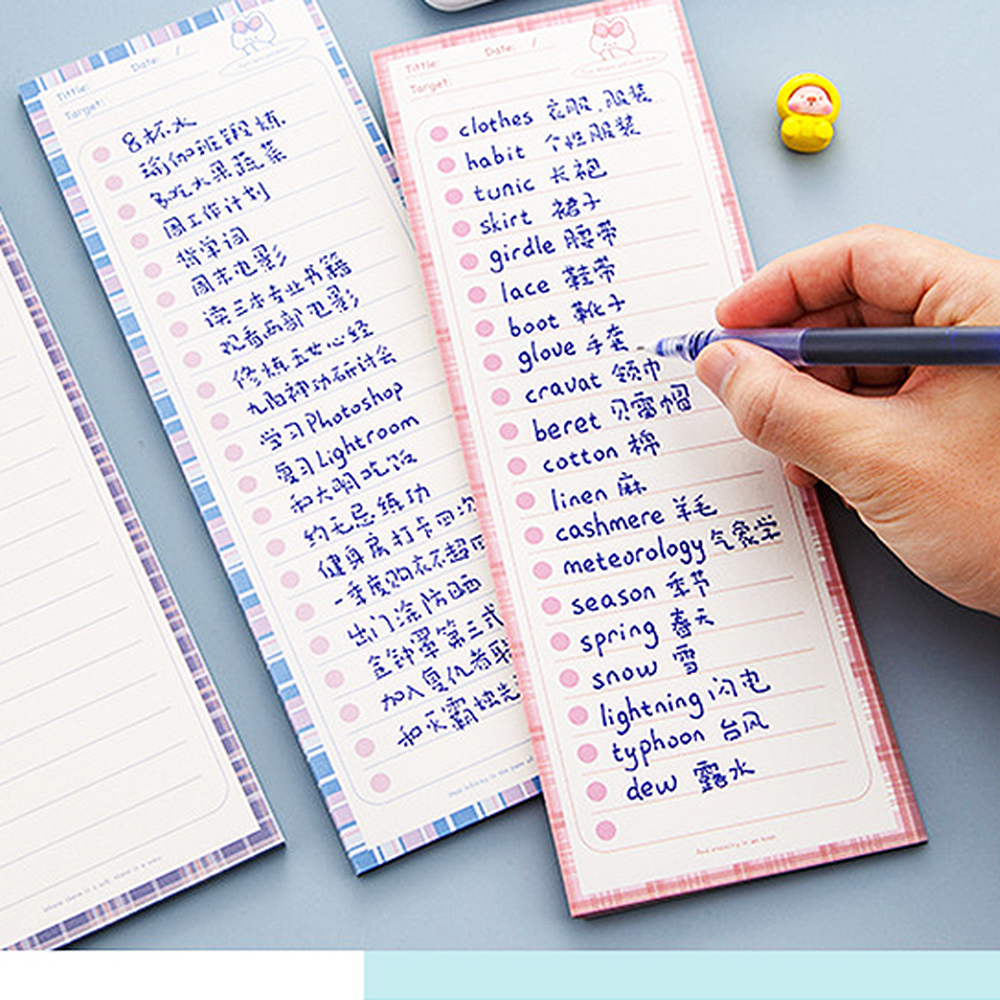 Tittle:
Date: /
Target:
8杯水
瑜伽班锻炼
多吃水果蔬菜
周工作计划
背单词
周末电影
读三本专业书籍
观看两部电影
修炼玉女心经
九阳神功研讨会
学习Photoshop
复习Lightroom
和大明吃饭
约无忌练功
健身房打卡四次
一季度购衣不超四
出门涂防晒
金钟罩第三式
加入复仇者联
和灭霸烛光
Tittle:
Date: /
Target:
clothes 衣服,服装
habit 个性服装
tunic 长袍
skirt 裙子
girdle 腰带
lace 鞋带
boot 靴子
glove 手套
cravat 领巾
beret 贝雷帽
cotton 棉
linen 麻
cashmere 羊毛
meteorology 气象学
season 季节
spring 春天
snow 雪
lightning 闪电
typhoon 台风
dew 露水